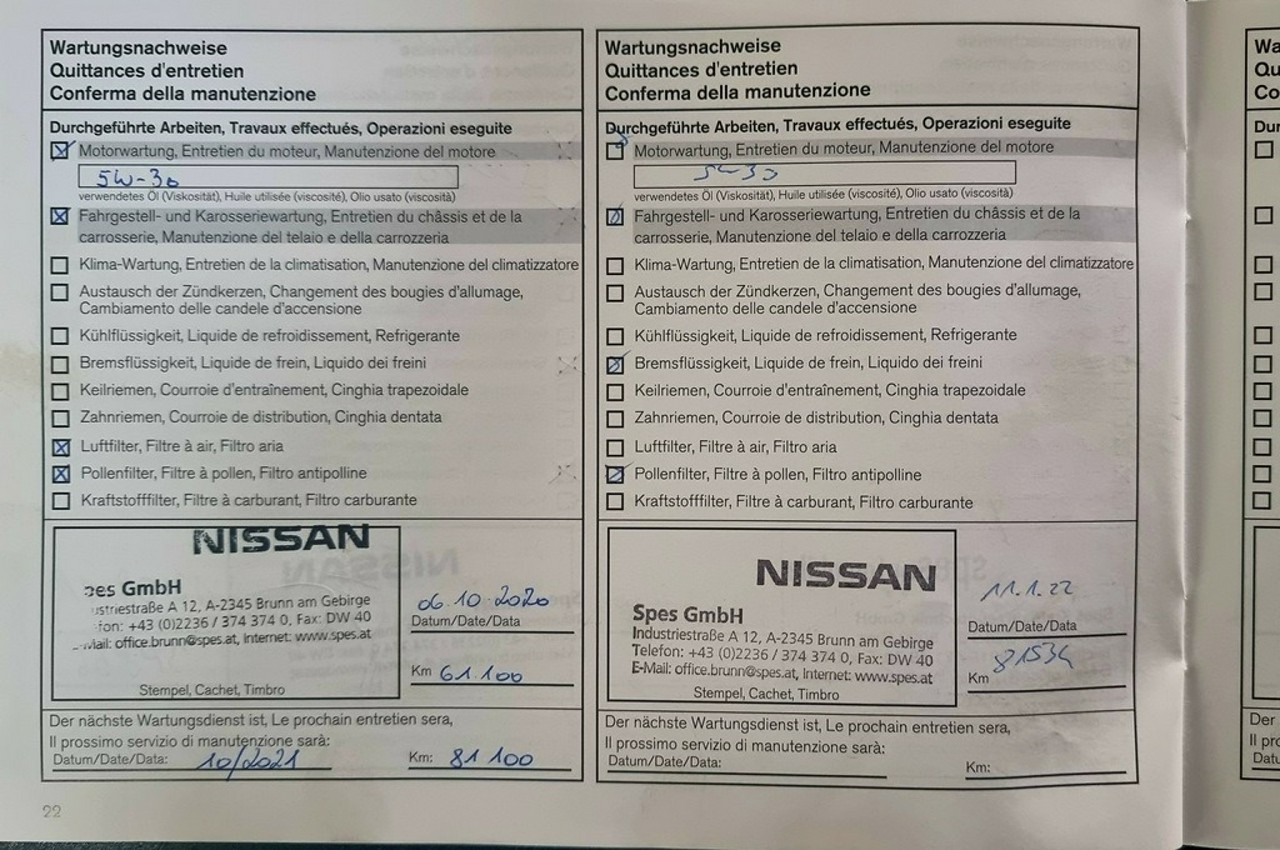 Wartungsnachweise
Quittances d'entretien
Conferma della manutenzione
Durchgeführte Arbeiten, Travaux effectués, Operazioni eseguite
Motorwartung, Entretien du moteur, Manutenzione del motore
5W-30
verwendetes Öl (Viskosität), Huile utilisée (viscosité), Olio usato (viscosità)
Fahrgestell- und Karosseriewartung, Entretien du châssis et de la
carrosserie, Manutenzione del telaio e della carrozzeria
Klima-Wartung, Entretien de la climatisation, Manutenzione del climatizzatore
Austausch der Zündkerzen, Changement des bougies d'allumage,
Cambiamento delle candele d'accensione
Kühlflüssigkeit, Liquide de refroidissement, Refrigerante
Bremsflüssigkeit, Liquide de frein, Liquido dei freini
Keilriemen, Courroie d'entraînement, Cinghia trapezoidale
Zahnriemen, Courroie de distribution, Cinghia dentata
Luftfilter, Filtre à air, Filtro aria
Pollenfilter, Filtre à pollen, Filtro antipolline
Kraftstofffilter, Filtre à carburant, Filtro carburante
NISSAN
GmbH
A 12, A-2345 Brunn am Gebirge
+43 (0)2236 / 374 374 0, Fax: DW 40
office.brunn@spes.at, Internet: www.spes.at
Stempel, Cachet, Timbro
06.10.2020
Datum/Date/Data
Km 61.100
Der nächste Wartungsdienst ist, Le prochain entretien sera,
Il prossimo servizio di manutenzione sarà:
Datum/Date/Data: 10/2021 Km: 81 100
22
Wartungsnachweise
Quittances d'entretien
Conferma della manutenzione
Durchgeführte Arbeiten, Travaux effectués, Operazioni eseguite
Motorwartung, Entretien du moteur, Manutenzione del motore
verwendetes Öl (Viskosität), Huile utilisée (viscosité), Olio usato (viscosità)
Fahrgestell- und Karosseriewartung, Entretien du châssis et de la
carrosserie, Manutenzione del telaio e della carrozzeria
Klima-Wartung, Entretien de la climatisation, Manutenzione del climatizzatore
Austausch der Zündkerzen, Changement des bougies d'allumage,
Cambiamento delle candele d'accensione
Kühlflüssigkeit, Liquide de refroidissement, Refrigerante
Bremsflüssigkeit, Liquide de frein, Liquido dei freini
Keilriemen, Courroie d'entraînement, Cinghia trapezoidale
Zahnriemen, Courroie de distribution, Cinghia dentata
Luftfilter, Filtre à air, Filtro aria
Pollenfilter, Filtre à pollen, Filtro antipolline
Kraftstofffilter, Filtre à carburant, Filtro carburante
NISSAN
Spes GmbH
Industriestraße A 12, A-2345 Brunn am Gebirge
Telefon: +43 (0)2236 / 374 374 0, Fax: DW 40
E-Mail: office.brunn@spes.at, Internet: www.spes.at
Stempel, Cachet, Timbro
11.1.22
Datum/Date/Data
Km 81534
Der nächste Wartungsdienst ist, Le prochain entretien sera,
Il prossimo servizio di manutenzione sarà:
Datum/Date/Data: Km: